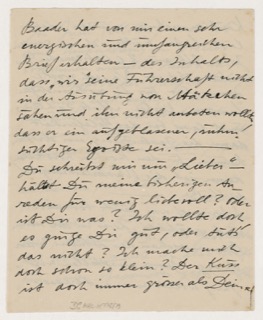 Baader hat von mir einen sehr
energischen und umfangreichen
Brief erhalten – des Inhalts,
dass „wir" seine Führerschaft nicht
in der Ausübung von Mätzchen
sähen und ihn nicht anbeten wollten,
dass er ein aufgeblasener, ruhm-
süchtiger Egoist sei. —
Du schreibst mir nur „Lieber" –
hältst Du meine bisherigen An-
reden für wenig liebevoll? oder
ist Dir was? Ich wollte doch
es ginge Dir gut, oder tut's
das nicht? Ich mache mich
doch schon so klein? Der Kuss
ist doch immer grösser als Dein